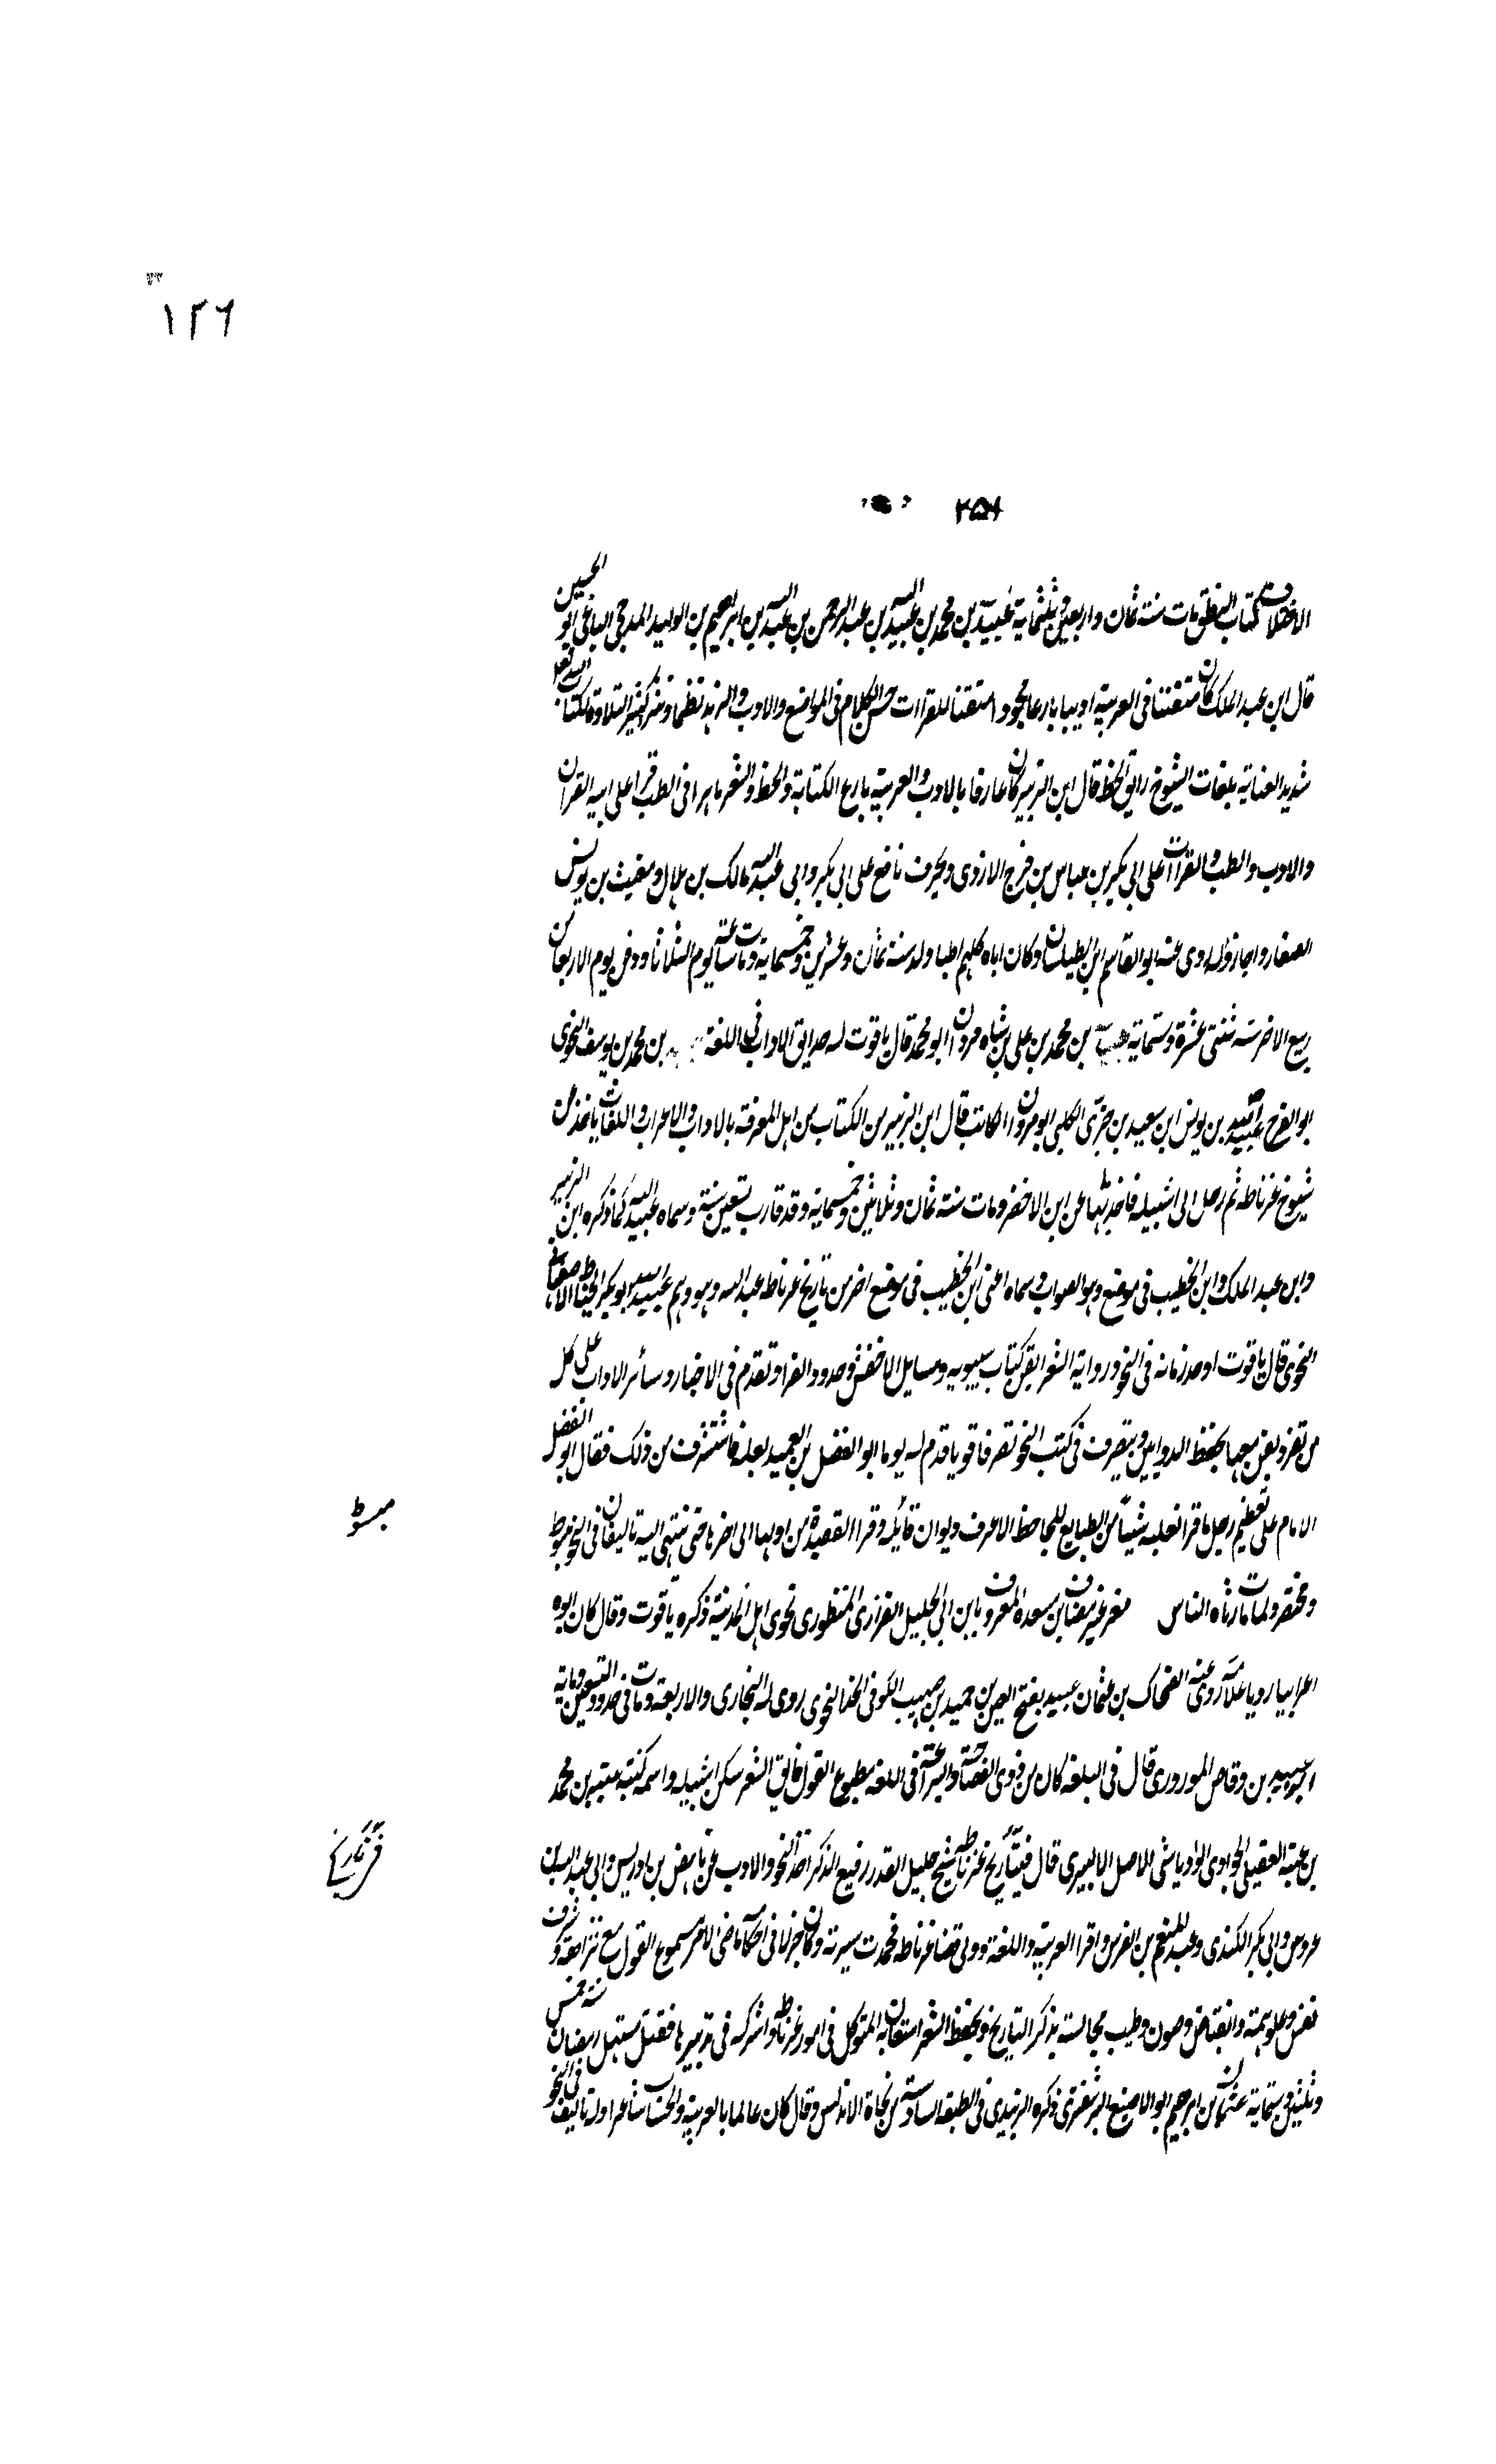 ١٢٦
٢٥٨
الاختلاف كتاب النطق مات سنة ثمان واربعين وثلثماية عبيد الله بن محمد بن عبيد الله بن عبد الرحمن بن عبيد الله بن ابراهيم بن الوليد المدحجي الباغي ابو الحسين
قال ابن عبد الملك كان متفننا في العربية اديبا بارعا مجودا متقنا للقراات حسن الكلام في المواضع والادب والزهد نظما ونثرا كثير التلاوة لكتاب الله تعالى
شديد العناية بلغات الشيوخ رايق الخط قال ابن الزبير كان عارفا بالادب والعربية بارع الكتابة والخط والشعر ماهرا في الطب قرا على ابيه القران
والادب والطب والقراآت على ابي بكر بن عباس بن فرج الازدي وبحرف نافع على ابي بكر وابي عبد الله مالك بن بلال ومغيث بن يونس
الصفار واجاز له روى عنه ابو القاسم ابن الطيلسان وكان اباه كلهم اطبا ولد سنة ثمان وعشرين وخمسماية ومات عشية يوم الثلاثا ودفن يوم الاربعا من
ربيع الاخر سنة ثنتى عشرة وستماية بن محمد بن علي بن شاه مردان ابو محمد قال ياقوت له حدايق الاداب في اللغة بن محمد بن يوسف النحوي
ابو الفرج عبيد الله بن يونس ابن سعيد بن جزى الكلبي ابو مروان الكاتب قال ابن الزبير من الكتاب من اهل المعرفة بالاداب والاعراب واللغات ياخذ عن
شيوخ غرناطه ثم رحل الى اشبيله فاخذ بها عن ابن الاخضر ومات سنة ثمان وثلاثين وخمسماية وقد قارب تسعين سنة وسماه عبيد الله كما ذكره ابن الزبير
وابن عبد الملك وابن الخطيب في موضع وهو الصواب وسماه اعنى ابن الخطيب في موضع اخر من تاريخ غرناطه عبد الله وهو وهم عبيد الله ابو بكر الخياط الاصفهاني
النحوي قال ياقوت اوحد زمانه في النحو ورواية الشعر اتقن كتاب سيبويه ومسايل الاخفش وحدود الفرا وتقدم في الاخبار وسائر الاداب على كل
من تفرد بفن منها بحفظ الدواوين ويتصرف في كتب النحو تصرفا قويا قدم له يوما ابو الفضل بن العميد نعله فاستشرف من ذلك فقال ابو الفضل
الام على تعظيم رجل ما قرا عليه شيئا من الطبايع للجاحظ الا عرف ديوان قائله وقرا القصيدة من اولها الى اخرها حتى ننتهى اليه تاليفان في النحو مبسوط
مبسوط
ومختصر ولما مات رثاه الناس عبيد بن مسعدة المعروف بابن ابي الجليل الفزاري المنظوري نحوي اهل المدينة ذكره ياقوت وقال كان ابوه
اعرابيا بدويا علامة روى عنه الضحاك بن عثمان عبيد بفتح العين بن حميد بن صهيب الكوفي الحذا النحوي روى له البخاري والاربعة ومات في حدود التسعين وماية
بن وقاص الموروري قال في البلغه كان من ذوى الفصاحة والبراعة في اللغة مطبوع القول فايق الشعر سكن اشبيله واسمه كنيته عتبة بن محمد
بن عتبة العقيلي الجراوى الوادياشي الاصل الالبيري قال في تاريخ غرناطه شيخ جليل القدر رفيع الذكر اخذ النحو والادب عن ناهض بن ادريس وابي عبد الله بن
عروس وابي بكر الكندى وعبد المنعم بن الفرس واقرا العربية واللغة وولى قضا غرناطه فحمدت سيرته وكان جزلا في احكامه ماضى الامر مسموع القول مع نزاهة وشرف
نفس وعلو همة وانقباض وصون وطيب مجالسة يذكر التاريخ ويحفظ الشعر استعان به المتوكل في امور غرناطه واشركه في تدبيرها فقتل مستهل رمضان سنة خمس
وثلثين وستماية عثمان بن ابرهيم ابو الاصبغ البرشقرى ذكره الزبيدى في الطبقه السادسة من نحاة الاندلس وقال كان عالما بالعربية والحساب شاعرا وله تاليف في النحو